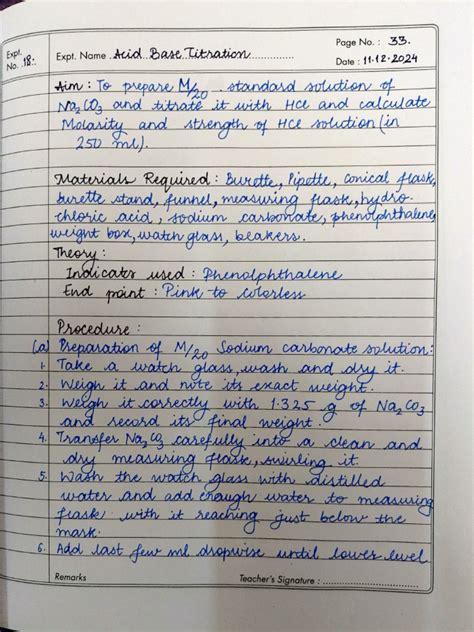 Expt. No. 18. Expt. Name Acid Base Titration Page No. : 33.
Date : 11.12.2024
Aim : To prepare M/20 standard solution of
Na2CO3 and titrate it with HCl and calculate
Molarity and strength of HCl solution (in
250 ml).
Materials Required : Burette, Pipette, conical flask,
burette stand, funnel, measuring flask, hydro-
chloric acid, sodium carbonate, phenolphthalene,
weight box, watch glass, beakers.
Theory :
Indicator used : Phenolphthalene
End point : Pink to colorless
Procedure :
(a) Preparation of M/20 Sodium carbonate solution:
1. Take a watch glass, wash and dry it.
2. Weigh it and note its exact weight.
3. Weigh it correctly with 1.325 g of Na2CO3
and record its final weight.
4. Transfer Na2CO3 carefully into a clean and
dry measuring flask, swirling it.
5. Wash the watch glass with distilled
water and add enough water to measuring
flask with it reaching just below the
mark.
6. Add last few ml dropwise until lower level
Remarks Teacher's Signature :